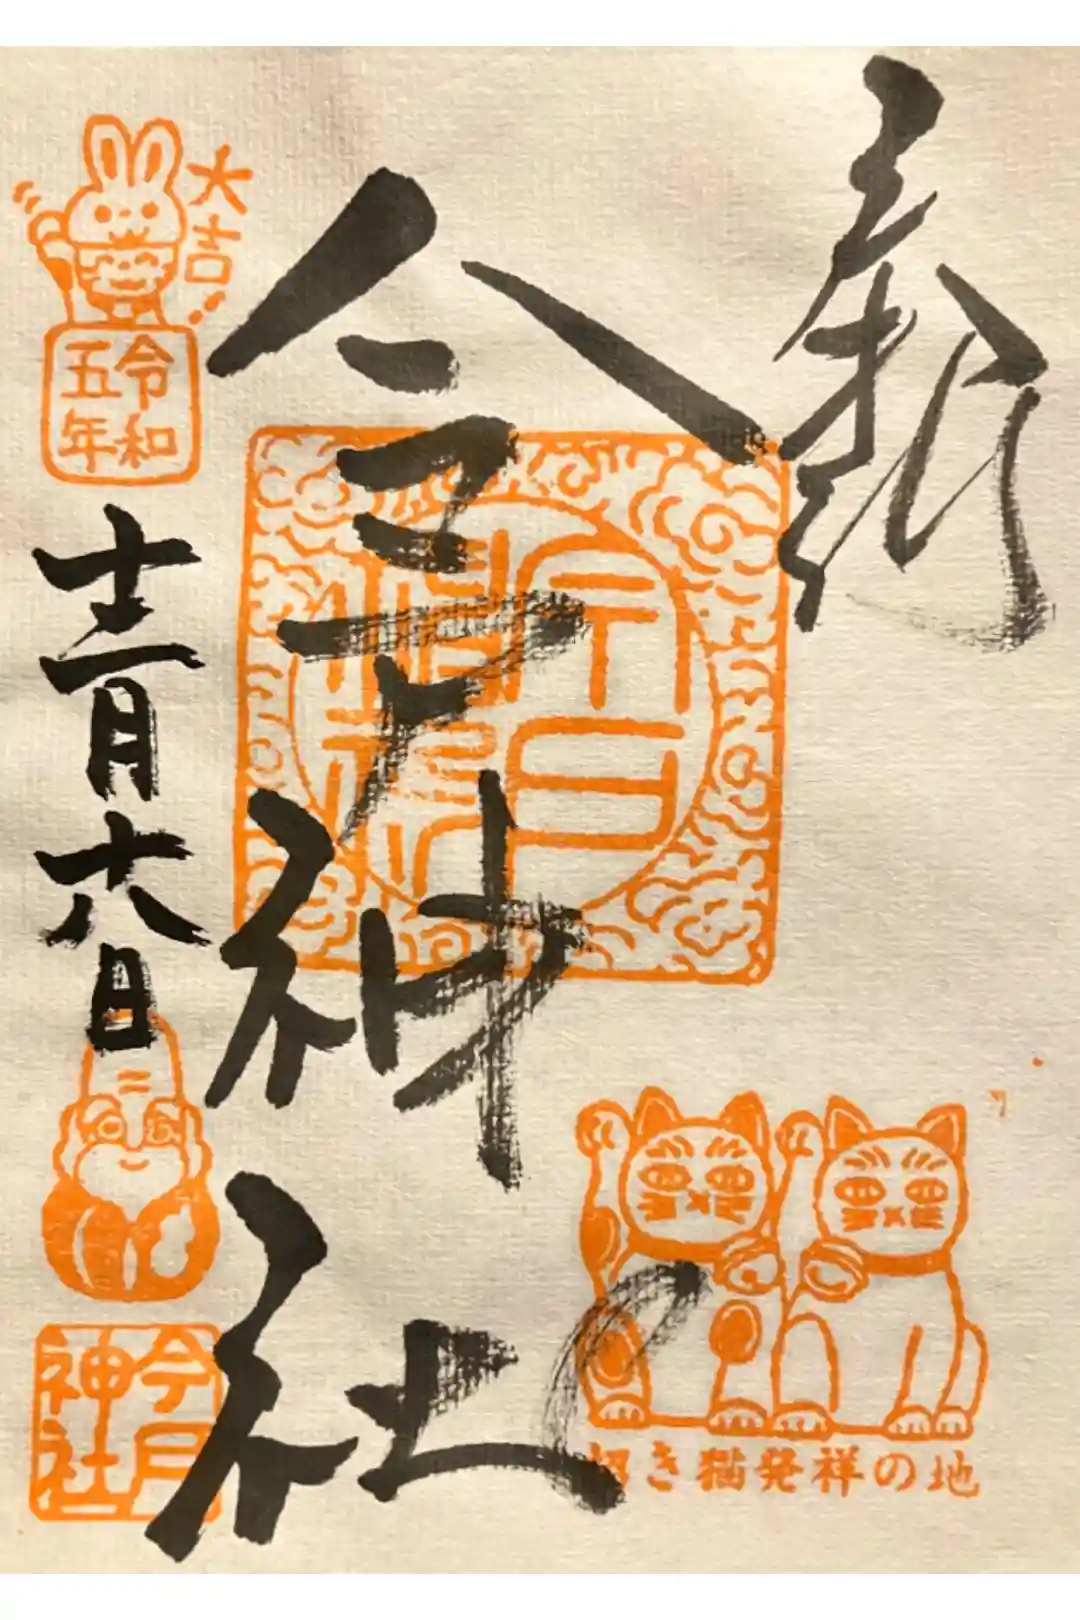 奉拝
今戸神社
今戸神社
招き猫発祥の地
大吉!
令和
五年
十二月六日
今戸
神社